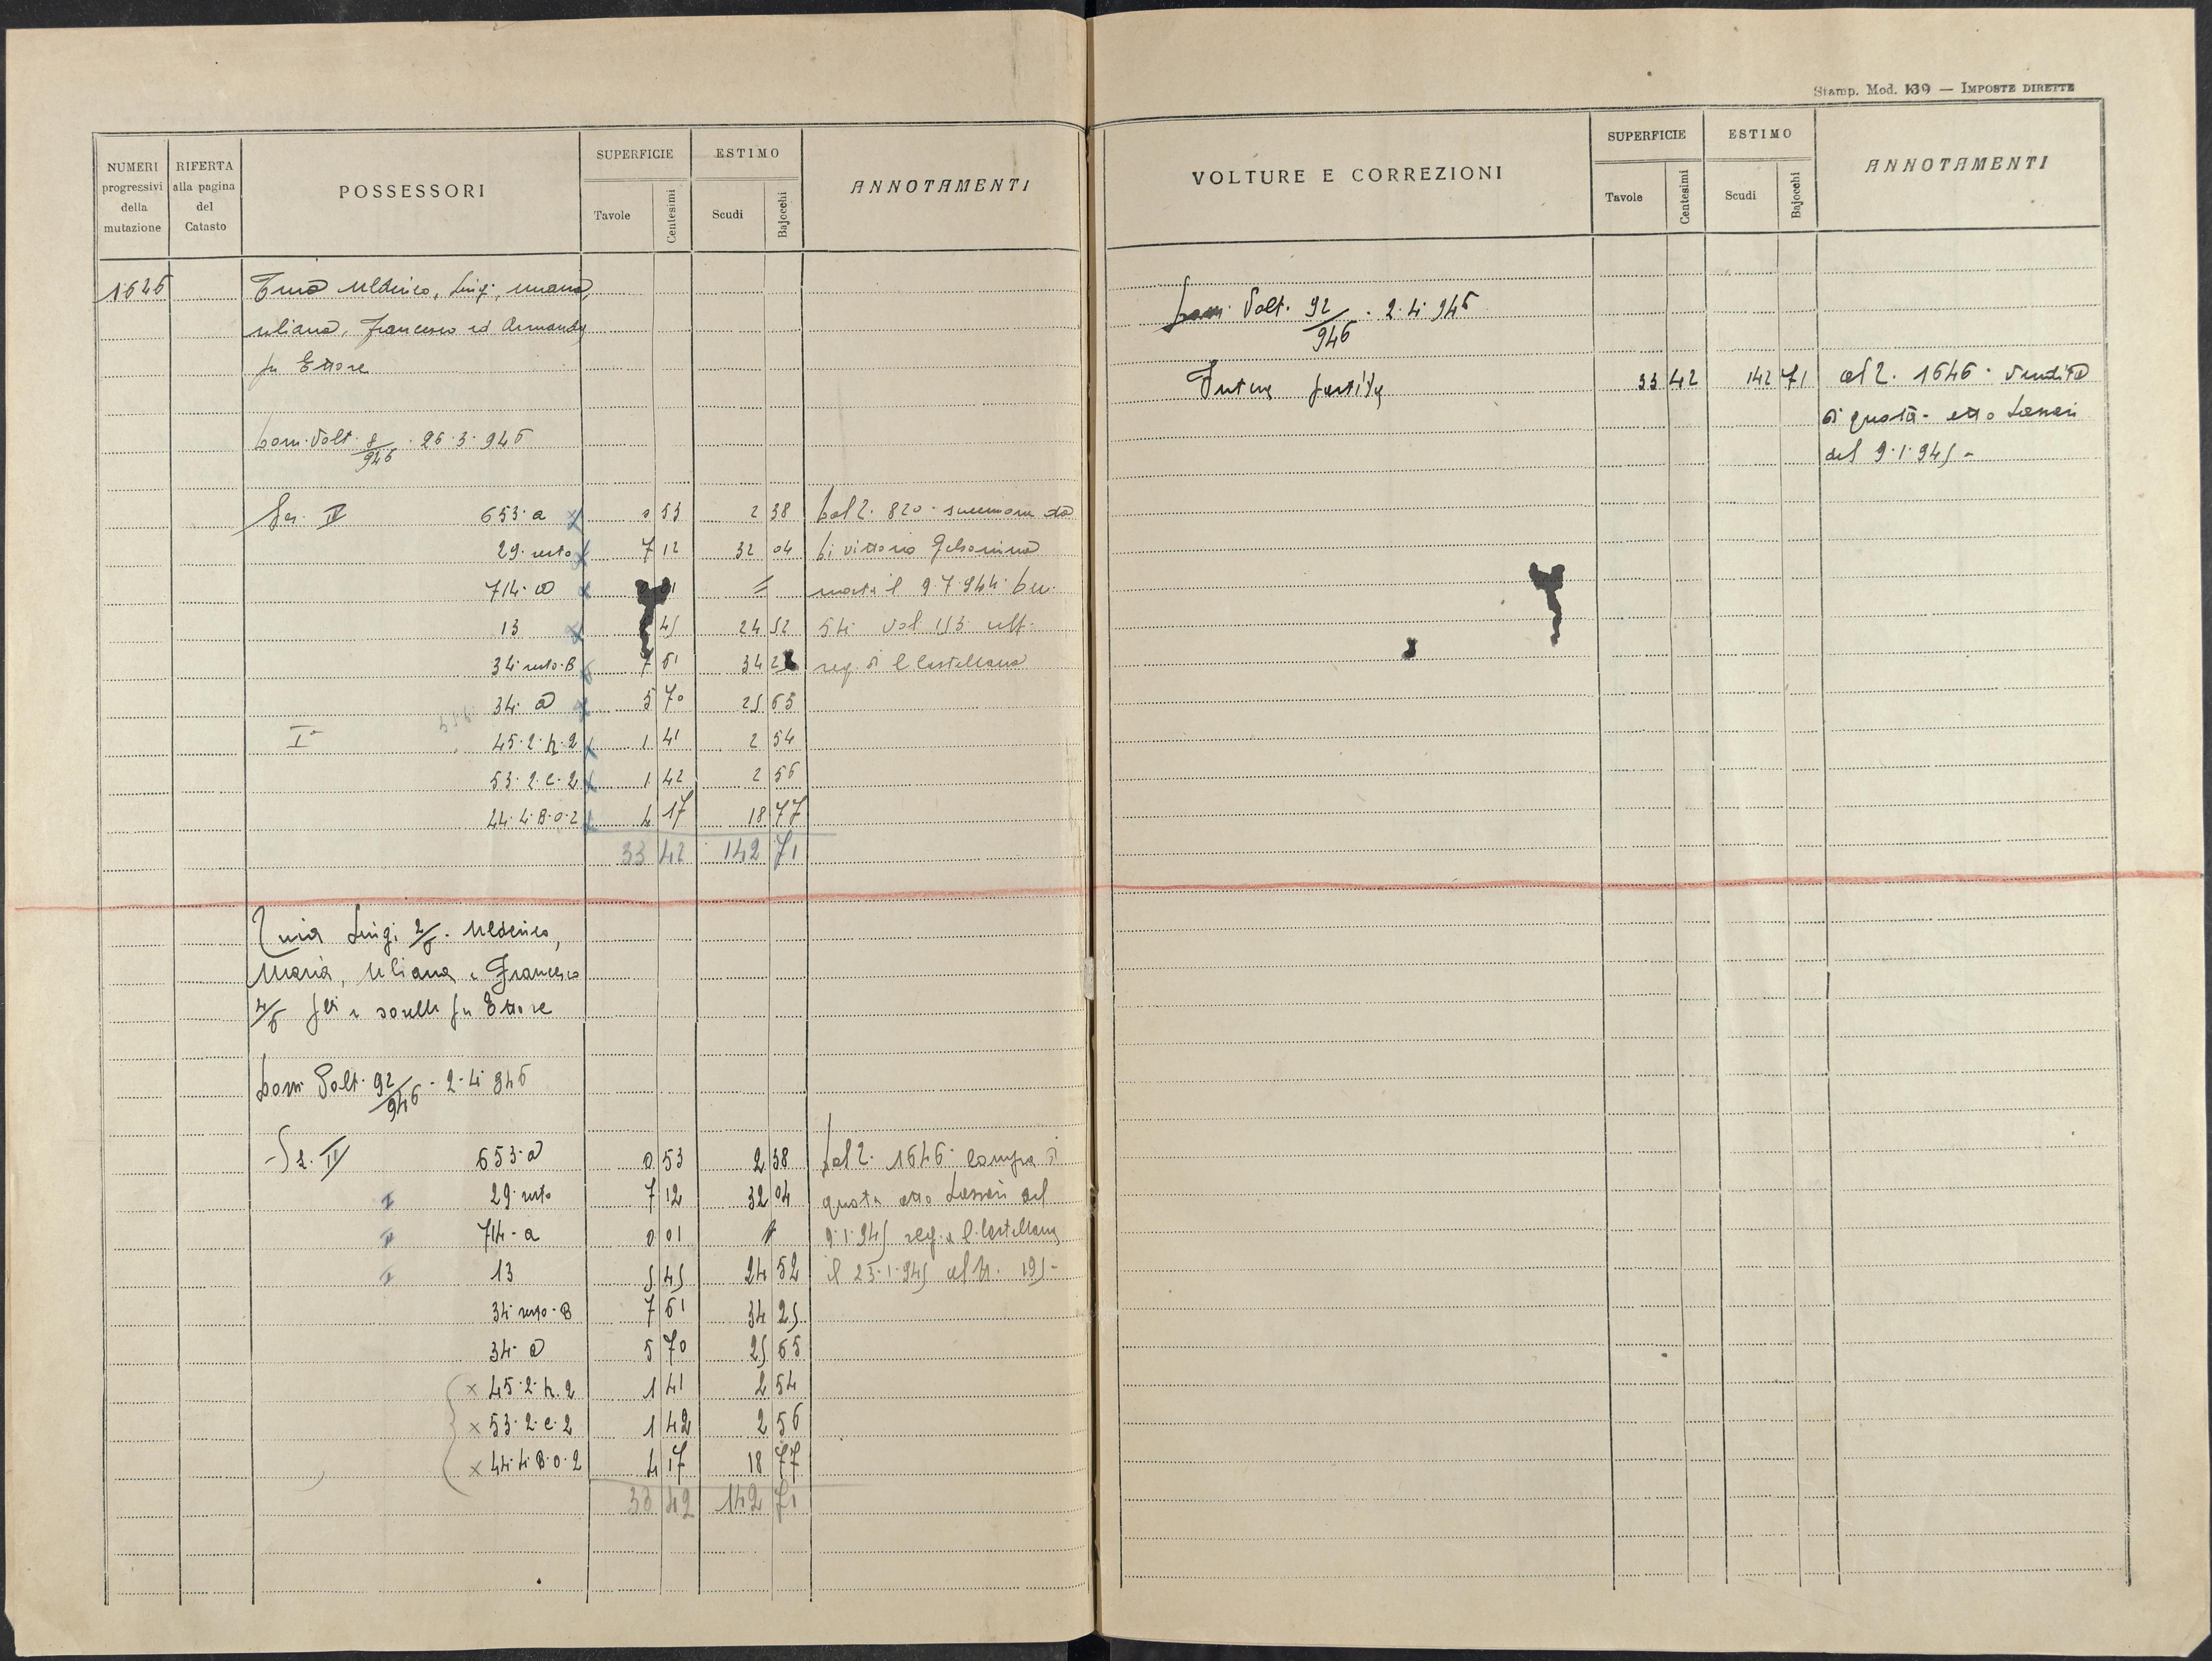 Stamp. Mod. 139 — IMPOSTE DIRETTE
NUMERI progressivi della mutazione
RIFERTA alla pagina del Catasto
POSSESSORI
SUPERFICIE
Tavole
Centesimi
ESTIMO
Scudi
Bajocchi
ANNOTAMENTI
1646
Luigi,
Francesco ed Armando
fu Ettore
Volt. 8/946 · 26·3·946
Sez. IV 653·a 0 53 2 38 dal 2. 820 · successione
29·resto 7 12 32 04 Di Vittorio Gelsomina
714·a 0 01 = morta il 9·7·944·
13 45 24 52 54· Vol 153
34·resto·B 7 61 34 25 reg. a C. Castellana
34·a 5 70 25 65
I° 45·2·h·2 1 41 2 54
53·2·e·2 1 42 2 56
44·4·B·o·2 4 17 18 77
33 42 142 71
Luigi 2/6 ·
Maria, e Francesco
4/6 flli e sorelle fu Ettore
Volt. 92/946 · 2·4·946
Sez. IV 653·a 0 53 2 38 dal 2. 1646· compra di
29·resto 7 12 32 04 quota atto del
714·a 0 01 9·1·945 reg. a C. Castellana
13 5 45 24 52 il 23·1·945 al N. 195-
34·resto·B 7 61 34 25
34·a 5 70 25 65
x 45·2·h·2 1 41 2 54
x 53·2·e·2 1 42 2 56
x 44·4·B·o·2 4 17 18 77
33 42 142 71
VOLTURE E CORREZIONI
SUPERFICIE
Tavole
Centesimi
ESTIMO
Scudi
Bajocchi
ANNOTAMENTI
Volt. 92/946 · 2·4·946
Intera partita 33 42 142 71 al 2. 1646· vendita
di quota· atto
del 9·1·945 -